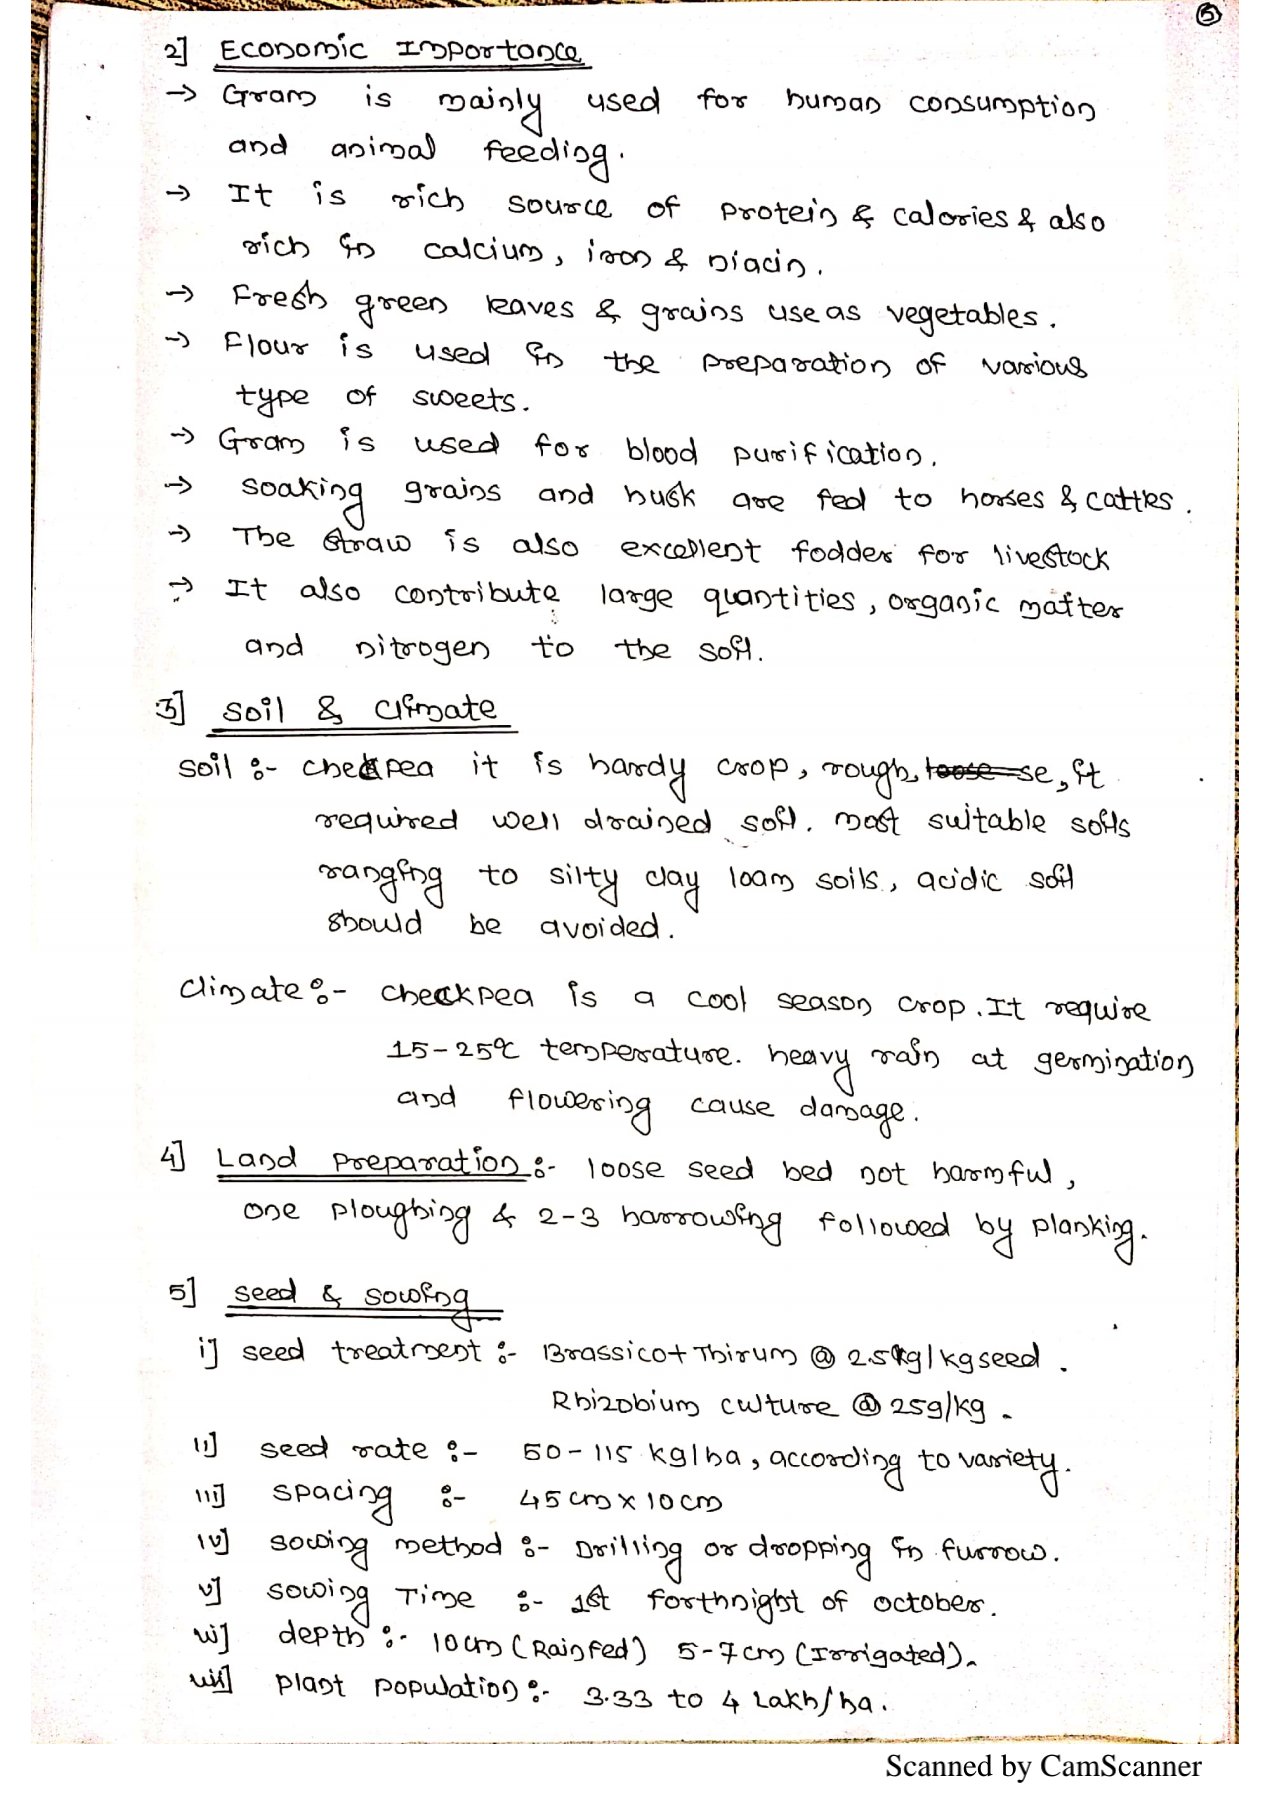 5
2] Economic Importance
→ Gram is mainly used for human consumption
and animal feeding.
→ It is rich source of protein & calories & also
rich in calcium, iron & niacin.
→ Fresh green leaves & grains use as vegetables.
→ Flour is used in the preparation of various
type of sweets.
→ Gram is used for blood purification.
→ Soaking grains and husk are fed to horses & cattles.
→ The straw is also excellent fodder for livestock
→ It also contribute large quantities, organic matter
and nitrogen to the soil.
3] Soil & Climate
Soil :- checkpea it is hardy crop, rough, loose se, it
required well drained soil. most suitable soils
ranging to silty clay loam soils, acidic soil
should be avoided.
Climate :- checkpea is a cool season crop. It require
15-25°C temperature. heavy rain at germination
and flowering cause damage.
4] Land preparation :- loose seed bed not harmful,
one ploughing & 2-3 harrowing followed by planking.
5] seed & sowing
i] seed treatment :- Brassicot Thirum @ 2.5kg/kg seed.
Rhizobium culture @ 25g/kg.
ii] seed rate :- 50-115 kg/ha, according to variety.
iii] spacing :- 45cm x 10cm
iv] sowing method :- Drilling or dropping in furrow.
v] sowing Time :- 1st forthnight of october.
vi] depth :- 10cm (Rainfed) 5-7cm (Irrigated).
vii] plant population :- 3.33 to 4 Lakh/ha.
Scanned by CamScanner